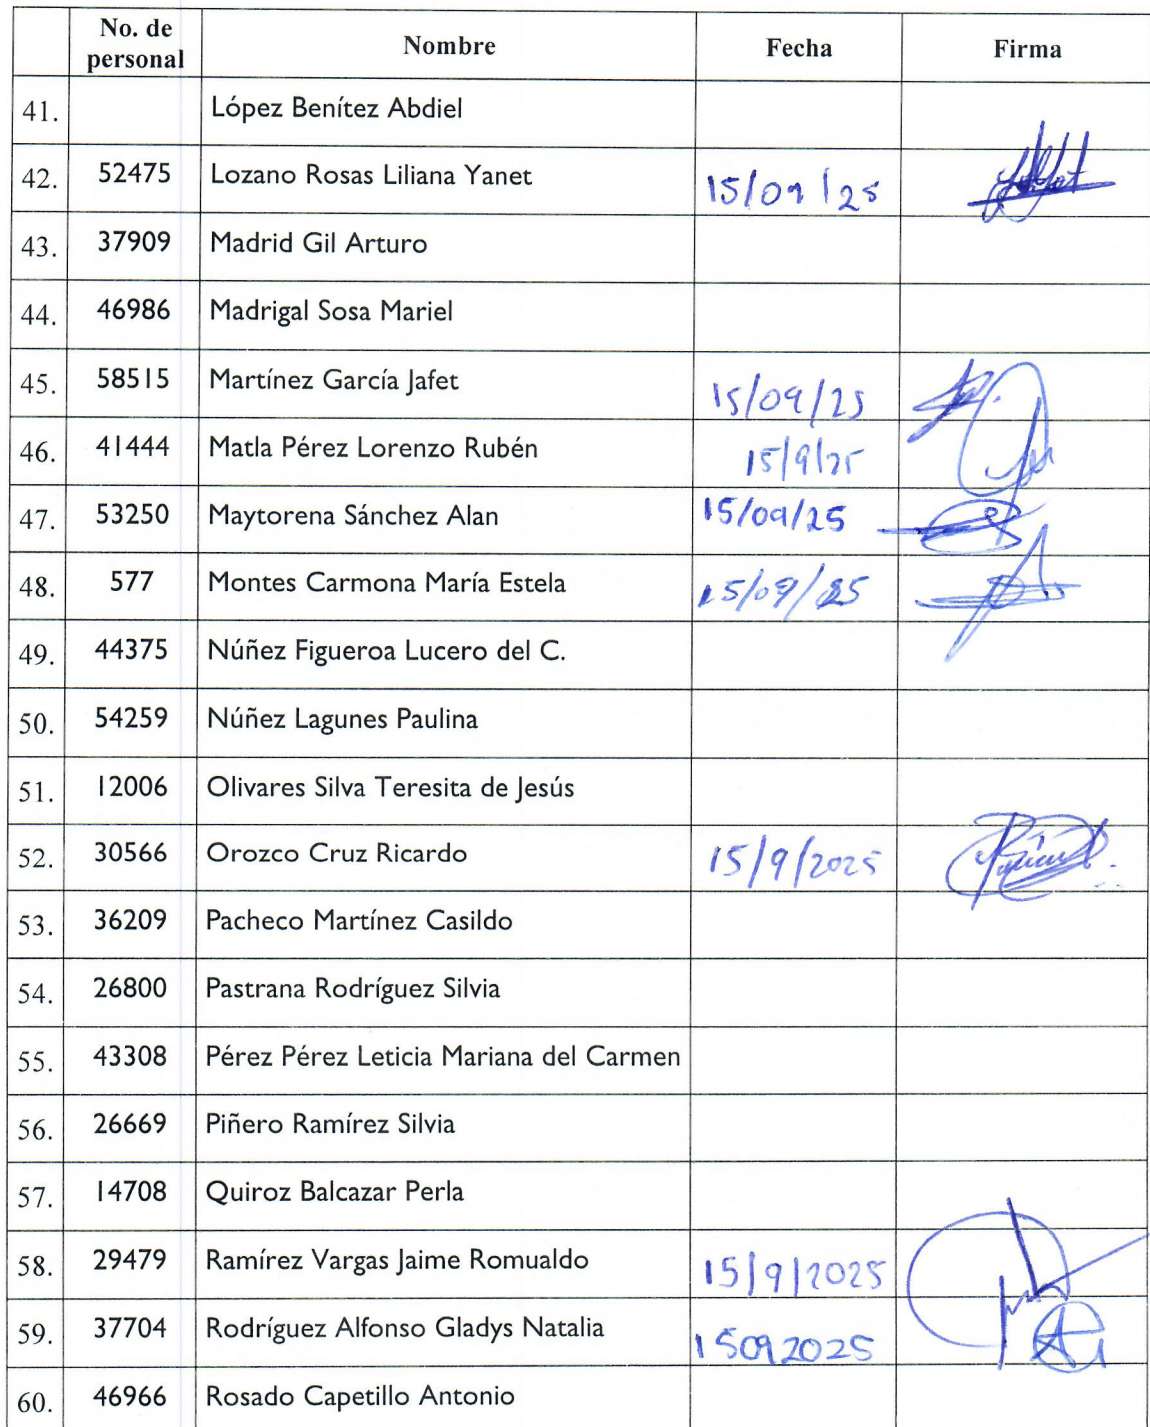 No. de personal Nombre Fecha Firma
41. López Benítez Abdiel
42. 52475 Lozano Rosas Liliana Yanet 15/09/25
43. 37909 Madrid Gil Arturo
44. 46986 Madrigal Sosa Mariel
45. 58515 Martínez García Jafet 15/09/25
46. 41444 Matla Pérez Lorenzo Rubén 15/9/25
47. 53250 Maytorena Sánchez Alan 15/09/25
48. 577 Montes Carmona María Estela 15/09/25
49. 44375 Núñez Figueroa Lucero del C.
50. 54259 Núñez Lagunes Paulina
51. 12006 Olivares Silva Teresita de Jesús
52. 30566 Orozco Cruz Ricardo 15/9/2025
53. 36209 Pacheco Martínez Casildo
54. 26800 Pastrana Rodríguez Silvia
55. 43308 Pérez Pérez Leticia Mariana del Carmen
56. 26669 Piñero Ramírez Silvia
57. 14708 Quiroz Balcazar Perla
58. 29479 Ramírez Vargas Jaime Romualdo 15/9/2025
59. 37704 Rodríguez Alfonso Gladys Natalia 15092025
60. 46966 Rosado Capetillo Antonio